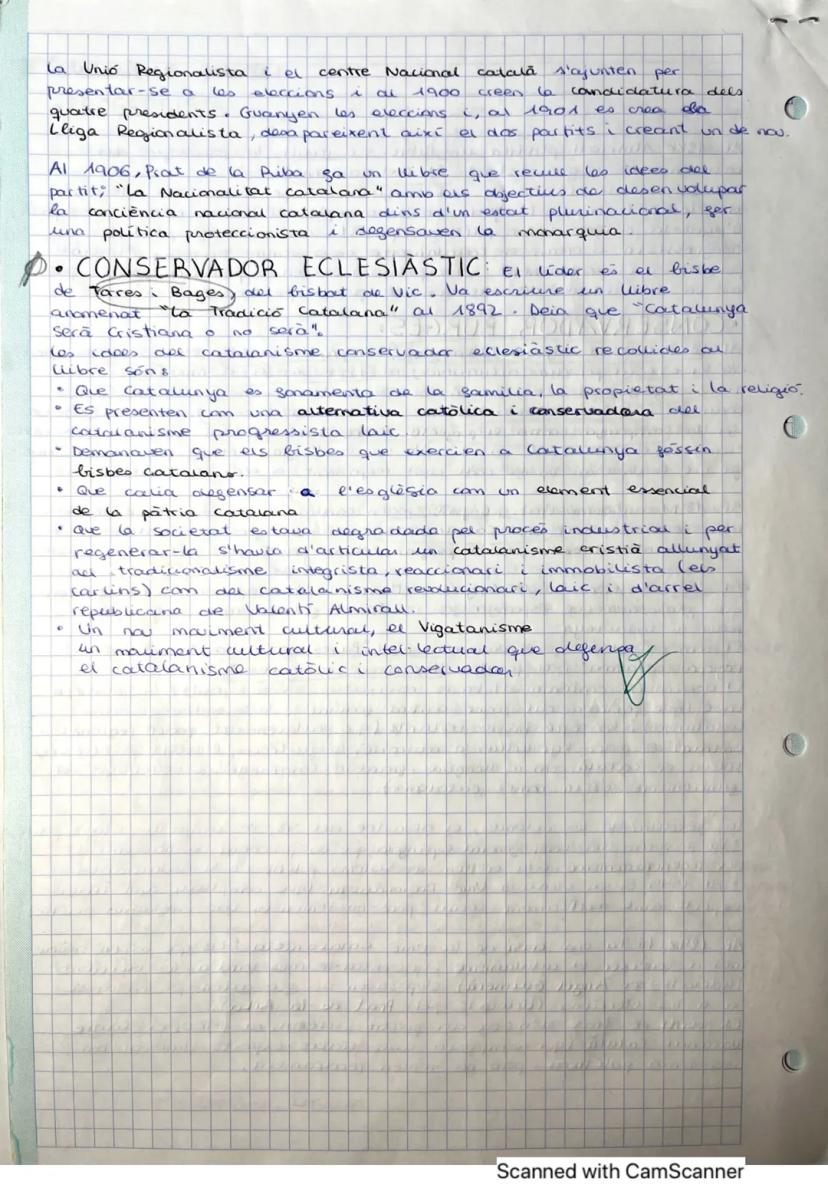 La Unió Regionalista i el centre Nacional català s'ajunten per
presentar-se a les eleccions i al 1900 creen la candidatura dels
quatre presidents. Guanyen les eleccions i, al 1901 es crea la
Lliga Regionalista, desapareixent així el dos partits i creant un de nou.
Al 1906, Prat de la Riba fa un llibre que recull les idees del
partit; "La Nacionalitat catalana" amb els objectius de desenvolupar
la conciència nacional catalana dins d'un estat plurinacional, fer
una política proteccionista i defensaven la monarquia.
• CONSERVADOR ECLESIÀSTIC: El líder és el bisbe
de Tares i Bages, del bisbat de Vic. Va escriure un llibre
anomenat "La Tradició Catalana" al 1892. Deia que "Catalunya
serà Cristiana o no serà".
Les idees del catalanisme conservador eclesiàstic recollides al
llibre són:
• Que Catalunya es fonamenta de la família, la propietat i la religió.
• Es presenten com una alternativa catòlica i conservadora del
catalanisme progressista laic.
• Demanaven que els bisbes que exercien a Catalunya fossin
bisbes catalans.
• Que calia defensar a l'església com un element essencial
de la pàtria catalana
• Que la societat estava degradada pel procés industrial i per
regenerar-la s'havia d'articular un catalanisme cristià allunyat
del tradicionalisme integrista, reaccionari i immobilista (els
carlins) com del catalanisme revolucionari, laic i d'arrel
republicana de Valentí Almirall.
• Un nou moviment cultural, el Vigatanisme
un moviment cultural i intel·lectual que defensa
el catalanisme catòlic i conservador
Scanned with CamScanner